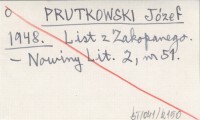 o PRUTKOWSKI Józef
1948. List z Zakopanego.
- Nowiny Lit. 2, nr 51.